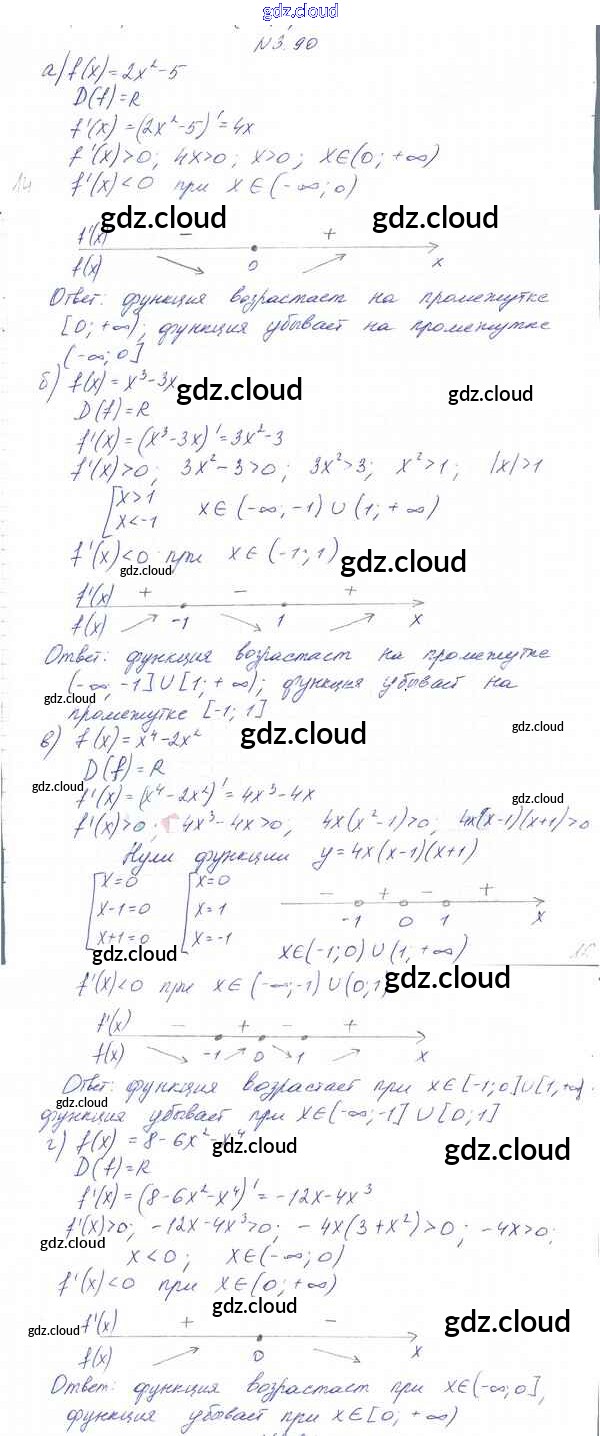 gdz.cloud
N 3.90
а) f(x) = 2x² - 5
D(f) = R
f'(x) = (2x² - 5)' = 4x
f'(x) > 0; 4x > 0; x > 0; x ∈ (0; +∞)
14 f'(x) < 0 при x ∈ (-∞; 0)
gdz.cloud gdz.cloud
f'(x) - +
f(x) 0 x
Ответ: функция возрастает на промежутке
[0; +∞); функция убывает на промежутке
(-∞; 0]
б) f(x) = x³ - 3x gdz.cloud gdz.cloud
D(f) = R
f'(x) = (x³ - 3x)' = 3x² - 3
f'(x) > 0; 3x² - 3 > 0; 3x² > 3; x² > 1; |x| > 1
[x > 1
x < -1 x ∈ (-∞; -1) ∪ (1; +∞)
f'(x) < 0 при x ∈ (-1; 1) gdz.cloud
gdz.cloud
f'(x) + - +
f(x) -1 1 x
Ответ: функция возрастает на промежутке
(-∞; -1] ∪ [1; +∞); функция убывает на
gdz.cloud gdz.cloud
промежутке [-1; 1]
в) f(x) = x⁴ - 2x² gdz.cloud gdz.cloud
D(f) = R
gdz.cloud gdz.cloud
f'(x) = (x⁴ - 2x²)' = 4x³ - 4x
f'(x) > 0; 4x³ - 4x > 0; 4x(x² - 1) > 0; 4x(x - 1)(x + 1) > 0
Нули функции y = 4x(x - 1)(x + 1)
[x = 0 [x = 0 - + - +
x - 1 = 0 x = 1 -1 0 1 x
x + 1 = 0 x = -1
gdz.cloud x ∈ (-1; 0) ∪ (1, +∞) 15
f'(x) < 0 при x ∈ (-∞; -1) ∪ (0; 1) gdz.cloud
f'(x) - + - +
f(x) -1 0 1 x
Ответ: функция возрастает при x ∈ [-1; 0] ∪ [1, +∞)
gdz.cloud gdz.cloud
функция убывает при x ∈ (-∞; -1] ∪ [0; 1]
г) f(x) = 8 - 6x² - x⁴ gdz.cloud gdz.cloud
D(f) = R
f'(x) = (8 - 6x² - x⁴)' = -12x - 4x³
f'(x) > 0; -12x - 4x³ > 0; -4x(3 + x²) > 0; -4x > 0;
gdz.cloud gdz.cloud
x < 0; x ∈ (-∞; 0)
f'(x) < 0 при x ∈ (0; +∞)
gdz.cloud gdz.cloud gdz.cloud
f'(x) + -
f(x) 0 x
Ответ: функция возрастает при x ∈ (-∞; 0],
функция убывает при x ∈ [0; +∞)